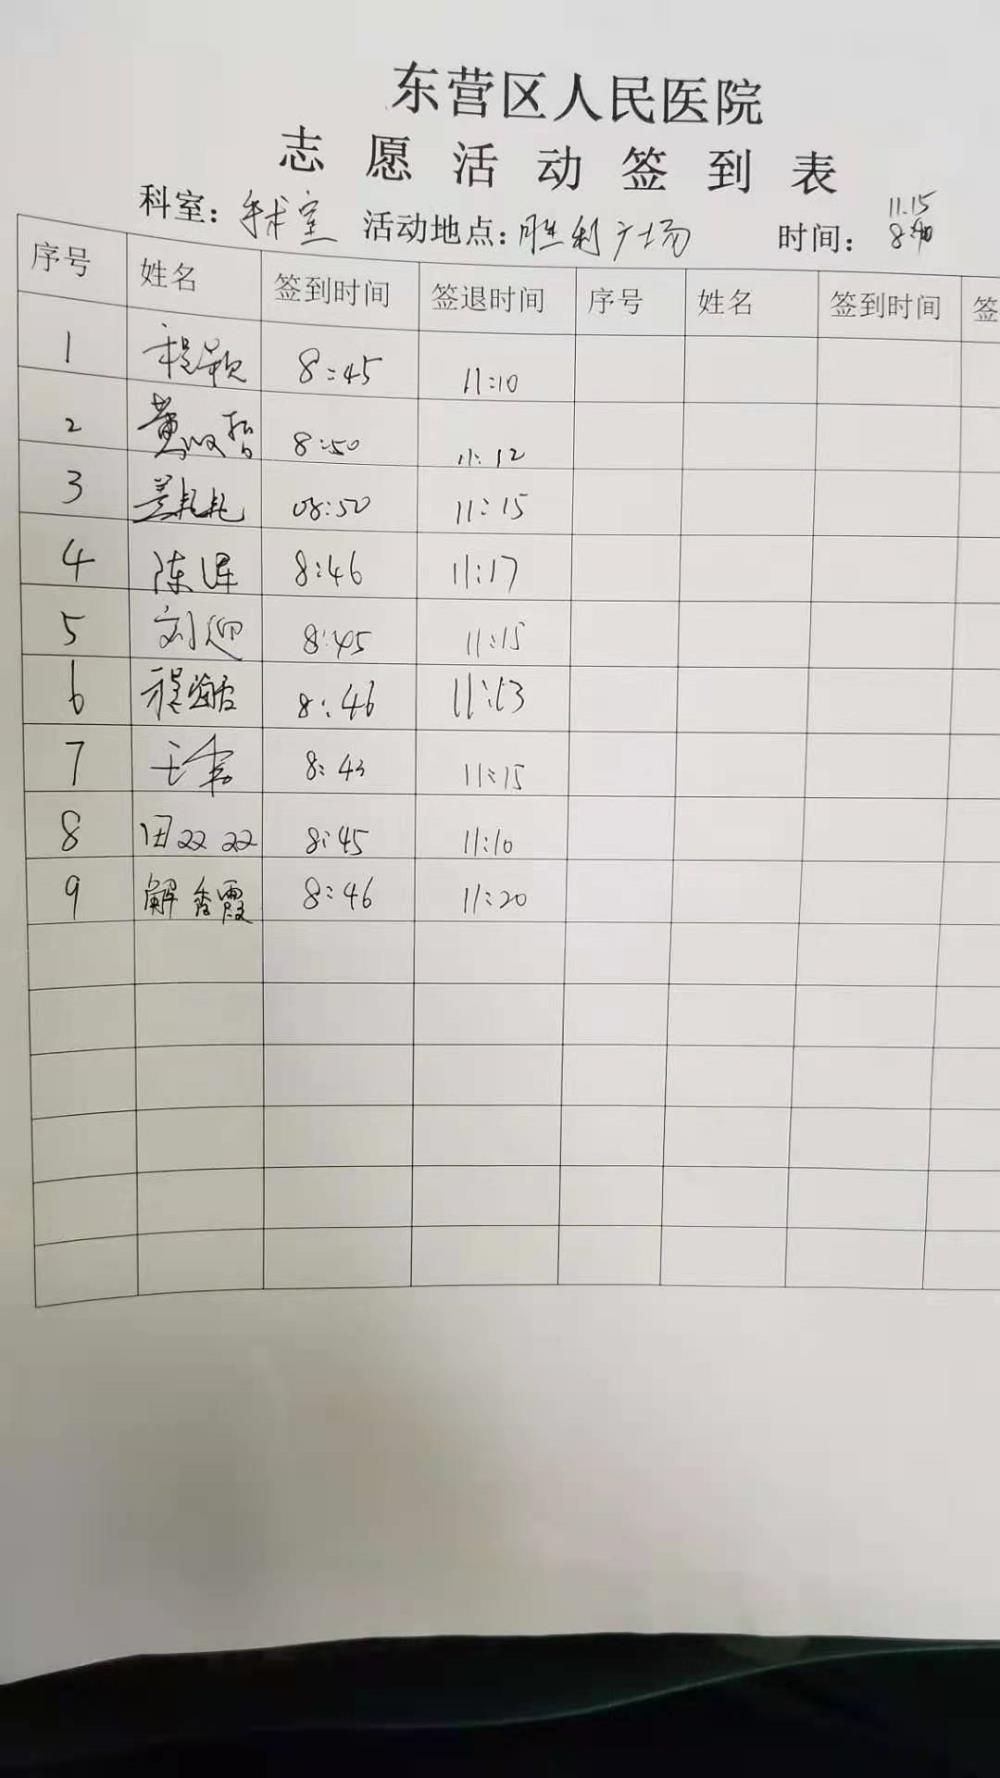 东营区人民医院
志愿活动签到表
科室：手术室 活动地点：胜利广场 时间：11.15
序号 姓名 签到时间 签退时间 序号 姓名 签到时间 签
1 程颖 8:45 11:10
2 黄 8:50 11:12
3 08:50 11:15
4 陈 8:46 11:17
5 刘迎 8:45 11:15
6 程 8:46 11:13
7 8:43 11:15
8 田双双 8:45 11:10
9 解秀霞 8:46 11:20